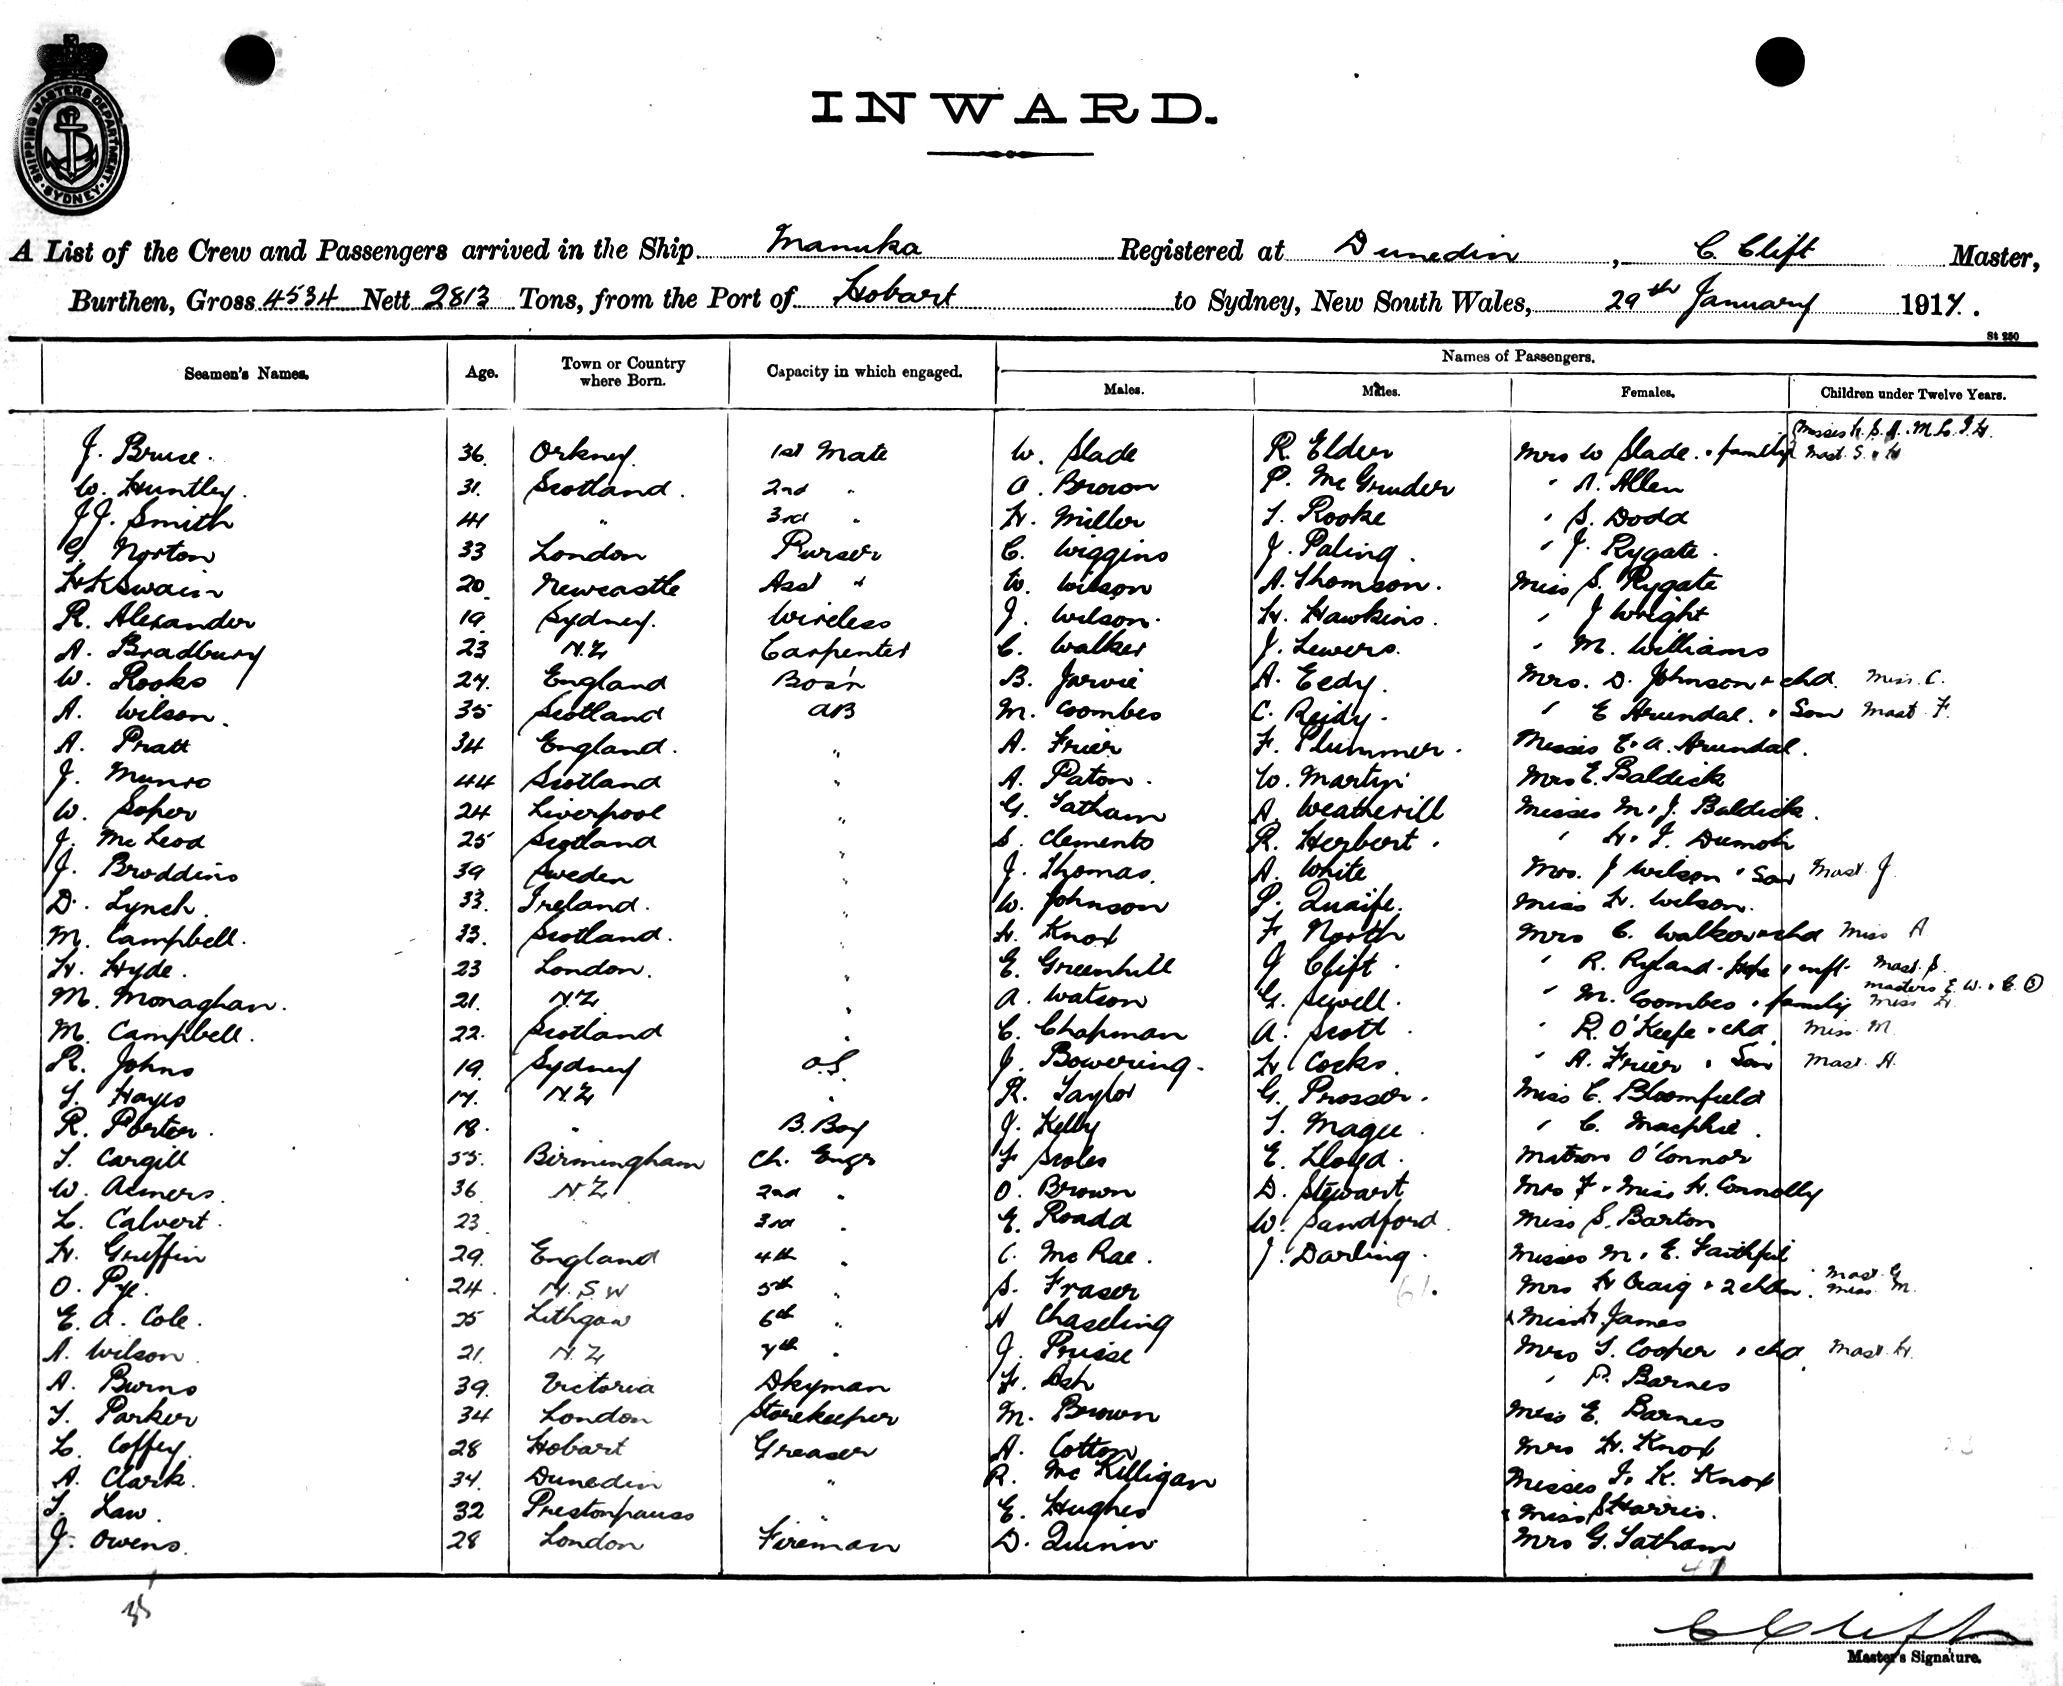 SHIPPING MASTERS DEPARTMENT
SYDNEY
INWARD.
A List of the Crew and Passengers arrived in the Ship Manuka Registered at Dunedin, C. Clift Master,
Burthen, Gross 4534 Nett 2813 Tons, from the Port of Hobart to Sydney, New South Wales, 29th January 1917.
St 250
Seamen's Names. Age. Town or Country where Born. Capacity in which engaged. Names of Passengers.
Males. Males. Females. Children under Twelve Years.
J. Bruce. 36. Orkney. 1st Mate W. Slade R. Elder Mrs W Slade. & family Mast. S. & H
W. Huntley. 31. Scotland. 2nd " A. Brown P. McGruder " A. Allen
J.J. Smith 41 " 3rd " H. Miller T. Rooke " S. Dodd
G. Norton 33 London Purser C. Wiggins J. Paling. " J. Rygate.
H K Swain 20 Newcastle Asst " W. Wilson A. Thomson. Miss S. Rygate
R. Alexander 19. Sydney. Wireless J. Wilson. H. Hawkins. " J Wright
A. Bradbury 23 N.Z Carpenter C. Walker J. Lewers. " M. Williams
W. Rooks 24. England Bos'n B. Jarvie A. Eedy. Mrs. D. Johnson & chd. Miss. C.
A. Wilson. 35 Scotland AB M. Coombes C. Reidy. " E Arundal. & Son Mast. F.
A. Pratt 34 England. " A. Frier F. Plummer. Misses E. & A. Arundal.
J. Munro 44 Scotland " A. Paton. W. Martin Mrs E. Baldick
W. Soper 24 Liverpool " G. Tatham A. Weatherill Misses M. & J. Baldick.
J. McLeod 25 Scotland " S. Clements R. Herbert. " H. & J. Dumoh
J. Broddins 39 Sweden " J. Thomas. A. White Mrs. J Wilson & Son Mast. J.
D. Lynch. 33. Ireland. " W. Johnson P. Quaife. Miss H. Wilson.
M. Campbell. 33. Scotland. " H. Knox F. North Mrs C. Walker & chd Miss A.
H. Hyde. 23 London. " E. Greenhill J Clift. " R. Ryland & inft. Mast. S.
M. Monaghan. 21. N.Z. " A. Watson G. Sewell. " M. Coombes & family Masters E. W. & C. (3) Miss H.
M. Campbell. 22. Scotland " C. Chapman A. Scott. " R. O'Keefe & chd. Miss. M.
R. Johns 19. Sydney O.S. J. Bowering. H. Cocks. " A. Frier & Son Mast. A.
T. Hayes 17. N.Z " R. Taylor G. Prosser. Miss C. Bloomfield
R. Porter. 18. " B. Boy J. Kelly T. Magee. " C. Macphie.
T. Cargill 55. Birmingham Ch. Engr F Scoles E. Lloyd. Matron O'Connor
W. Aemers. 36 N.Z 2nd " O. Brown D. Stewart Mrs F & Miss H. Connolly
L. Calvert. 23 " 3rd " E. Roadd W. Sandford. Miss S. Barton
H. Griffin 29. England 4th " C. McRae. J. Darling. Misses M. & E. Faithful
O. Pye. 24. N.S.W 5th " S. Fraser 61. Mrs H Craig & 2 chdn. Mast. G. Miss. M.
E. A. Cole. 25 Lithgow 6th " A Chaseling Miss H. James
A. Wilson. 21. N.Z 7th " J. Prisse Mrs T. Cooper & chd. Mast. H.
A. Burns 39. Victoria Dkyman F. Ash " P. Barnes
T. Parker 34 London Storekeeper M. Brown Miss E. Barnes
L. Coffey. 28 Hobart Greaser A. Cotton Mrs H. Knox
A. Clark. 34. Dunedin " R. McKilligan Misses J. & K. Knox
T. Law. 32 Prestonpanss " E. Hughes Miss S Harris.
J. Owens. 28 London Fireman D. Quinn Mrs G. Tatham
35
C Clift
Master's Signature.